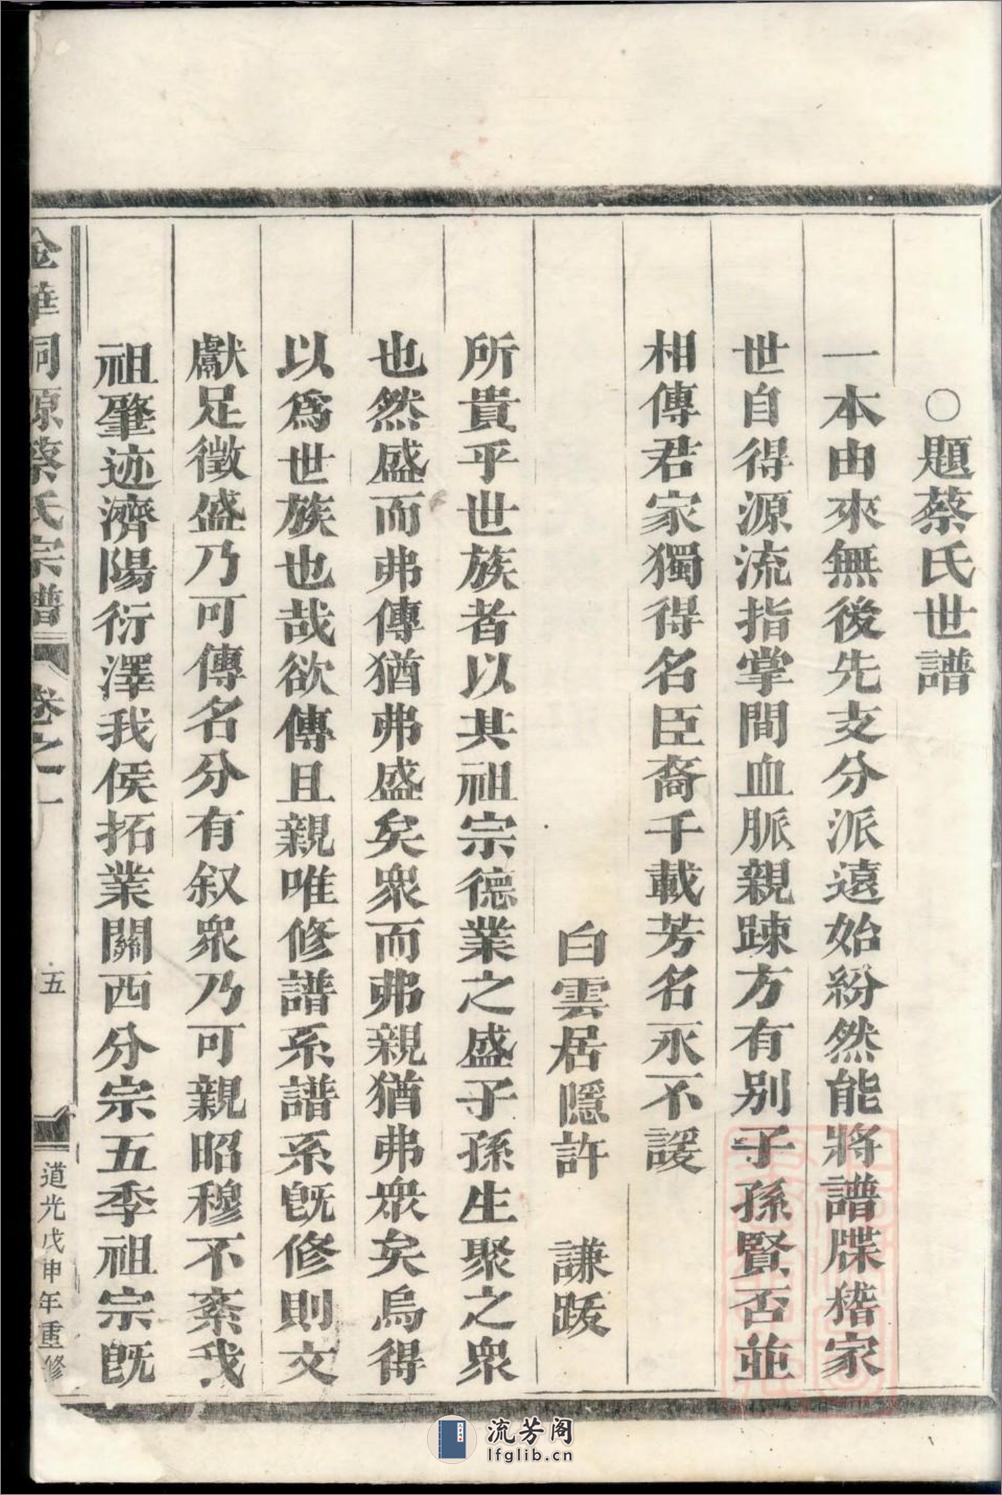 ○題蔡氏世譜
一本由來無後先支分派遠始紛然能將譜牒稽家
世自得源流指掌間血脈親踈方有别子孫賢否並
相傳君家獨得名臣裔千載芳名永不諼
白雲居隱許　謙跋
所貴乎世族者以其祖宗德業之盛子孫生聚之衆
也然盛而弗傳猶弗盛矣衆而弗親猶弗衆矣烏得
以爲世族也哉欲傳且親唯修譜系譜系旣修則文
獻足徵盛乃可傳名分有叙衆乃可親昭穆不紊我
祖肇迹濟陽衍澤我侯拓業關西分宗五季祖宗旣
金華洞源蔡氏宗譜　卷之一　五　道光戊申年重修
流芳阁
lfglib.cn